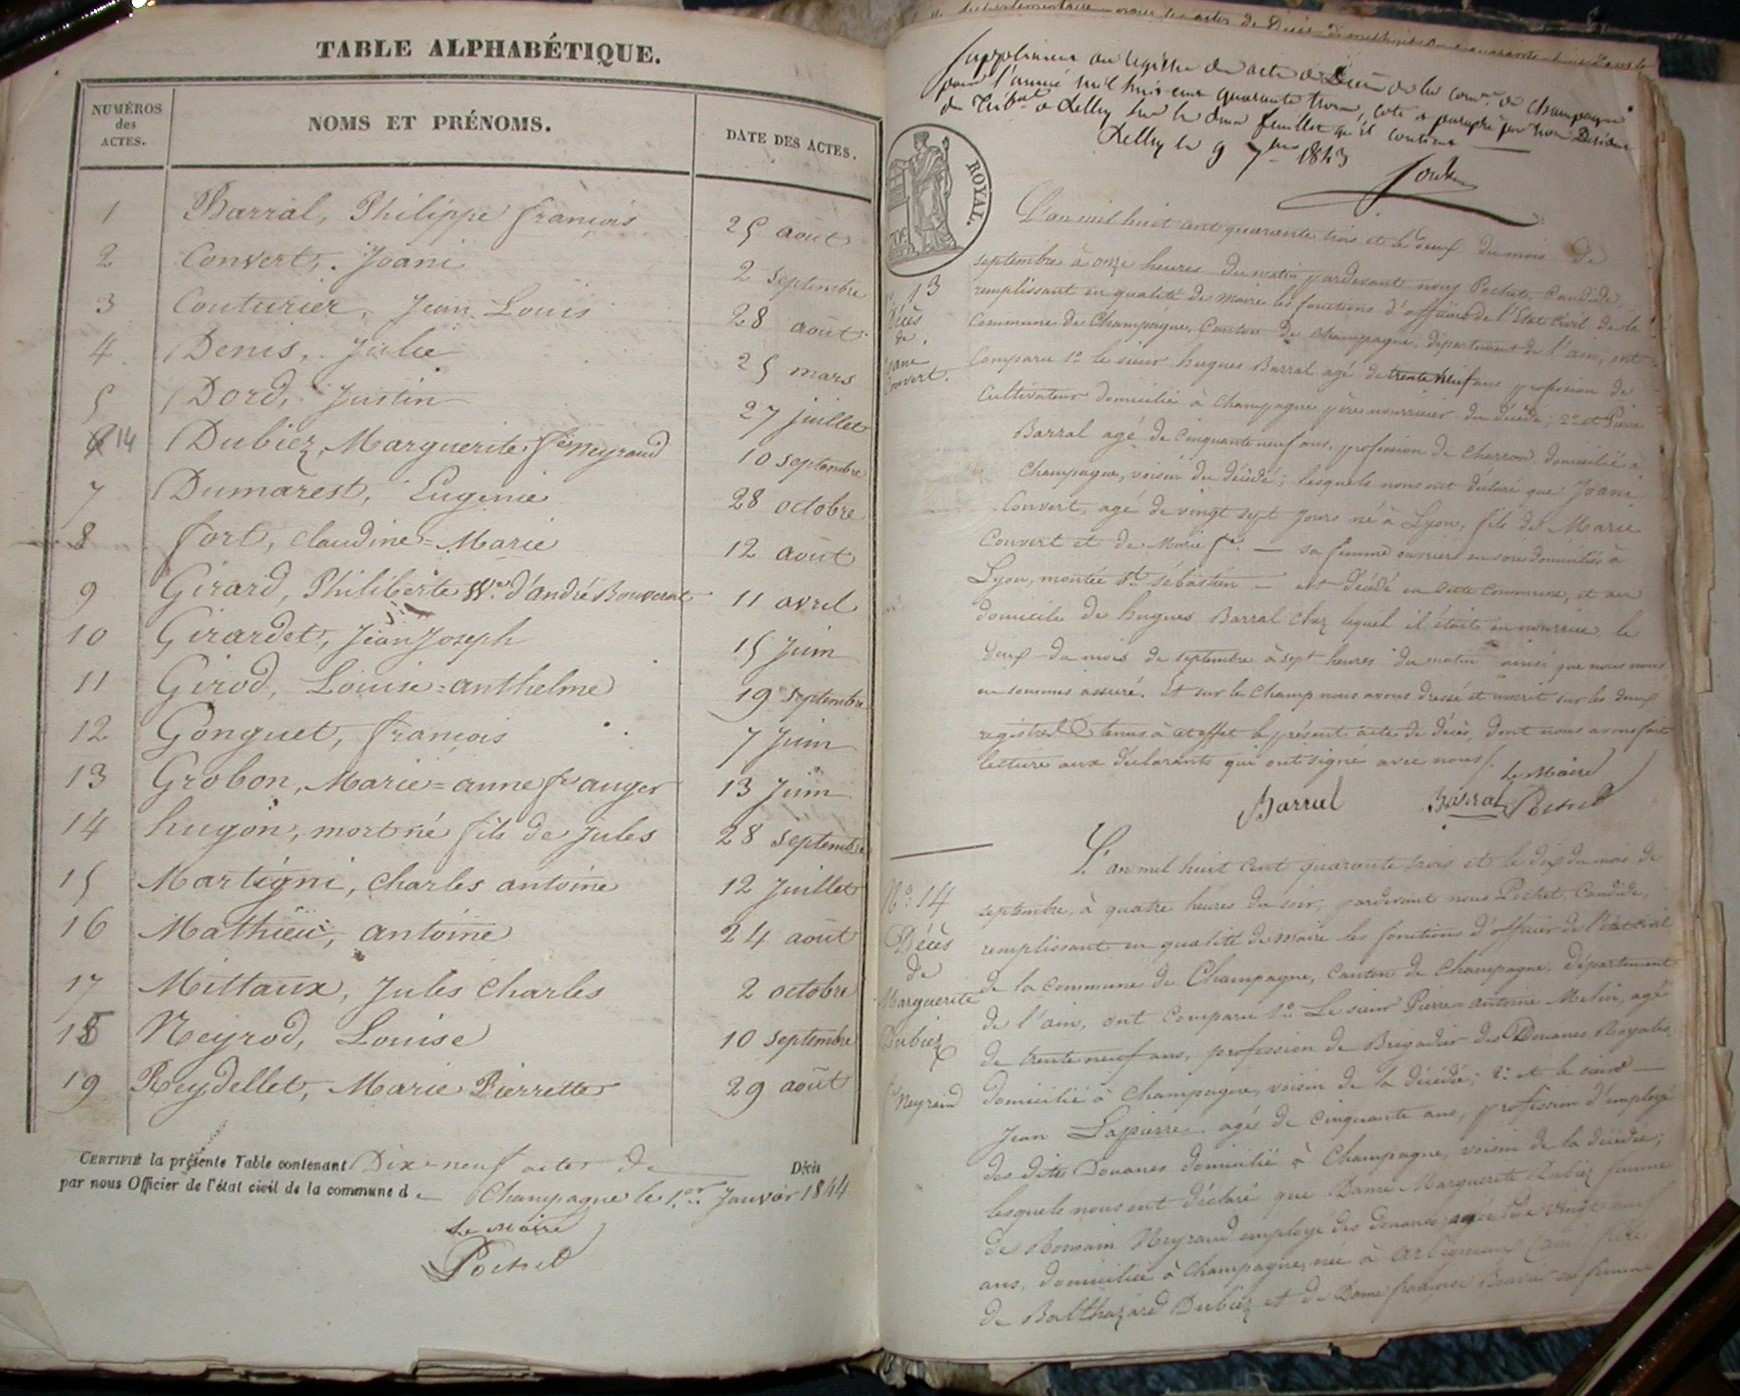 TABLE ALPHABÉTIQUE.
NUMÉROS des ACTES. NOMS ET PRÉNOMS. DATE DES ACTES.
1 Barral, Philippe françois 25 août
2 Convert, Joani 2 septembre
3 Couturier, Jean Louis 28 août
4 Denis, Julie 25 mars
5 Dord, Justin 27 juillet
14 Dubiez, Marguerite fe Neyraud 10 septembre
7 Dumarest, Eugenie 28 octobre
8 fort, claudine=Marie 12 août
9 Girard, Philiberte Vve d'andré Bouverat 11 avril
10 Girardet, Jean Joseph 15 Juin
11 Girod, Louise=anthelme 19 septembre
12 Gonguet, françois 7 Juin
13 Grobon, Marie=anne fe auger 13 Juin
14 hugon, mort né fils de Jules 28 septembre
15 Martigni, charles antoine 12 Juillet
16 Mathieu, antoine 24 août
17 Mittaux, Jules charles 2 octobre
18 Neyrod, Louise 10 septembre
19 Reydellet, Marie Pierrette 29 août
CERTIFIÉ la présente Table contenant Dix-neuf actes de Décès
par nous Officier de l'état civil de la commune de Champagne le 1er Janvier 1844
Le Maire
Pochet
Supplément au registre des actes de Décès de la comne de champagne
pour l'année mil huit cent quarante trois, coté et paraphé par nous
du Tribal de Belley sur les deux feuillets qu'il contient
Belley le 9 7bre 1843
ROYAL.
L'an mil huit cent quarante trois et le deux du mois de
septembre à onze heures du matin pardevant nous Pochet, Candide,
remplissant en qualité de maire les fonctions d'officier de l'Etat civil de la
Commune de Champagne, Canton de champagne, département de l'ain, ont
Comparu 1° le sieur hugues Barral agé de trente neuf ans profession de
Cultivateur domicilié à champagne père nourricier du décédé; 2° et Pierre
Barral agé de cinquante neuf ans, profession de charron domicilié à
champagne, voisin du décédé; lesquels nous ont déclaré que Joani
Convert, agé de vingt sept jours né à Lyon, fils de Marie
Convert et de Marie fe. — sa femme ouvriers en soie domiciliés à
Lyon, montée St sébastien — est décédé en cette commune, et au
domicile de hugues Barral chez lequel il était en nourrice le
deux du mois de septembre à sept heures du matin ainsi que nous nous
en sommes assuré. Et sur le champ nous avons dressé et inscrit sur les deux
registres tenus à cet effet le présent acte de décès, dont nous avons fait
lecture aux déclarants qui ont signé avec nous.
Le Maire
Barral Barral Pochet
13
Décès
de
Joane
Convert.
L'an mil huit cent quarante trois et le dix du mois de
septembre, à quatre heures du soir, pardevant nous Pochet, Candide,
remplissant en qualité de maire les fonctions d'officier de l'état civil
de la commune de Champagne, canton de champagne, département
de l'ain, ont comparu 1° Le sieur Pierre antoine Melin, agé
de trente neuf ans, profession de Brigadier des Douanes Royales
domicilié à champagne, voisin de la décédée; 2° et le sieur —
Jean Lapierre agé de cinquante ans, profession d'employé
des dites Douanes domicilié à Champagne, voisin de la décédée;
lesquels nous ont déclaré que Dame Marguerite Dubiez femme
de Romain Neyraud employé des douanes, agée de vingt neuf
ans, domiciliée à champagne, née à artemare (ain) fille
de Balthazard Dubiez et de Dame françoise sa femme
N° 14
Décès
de
Marguerite
Dubiez
fe Neyraud